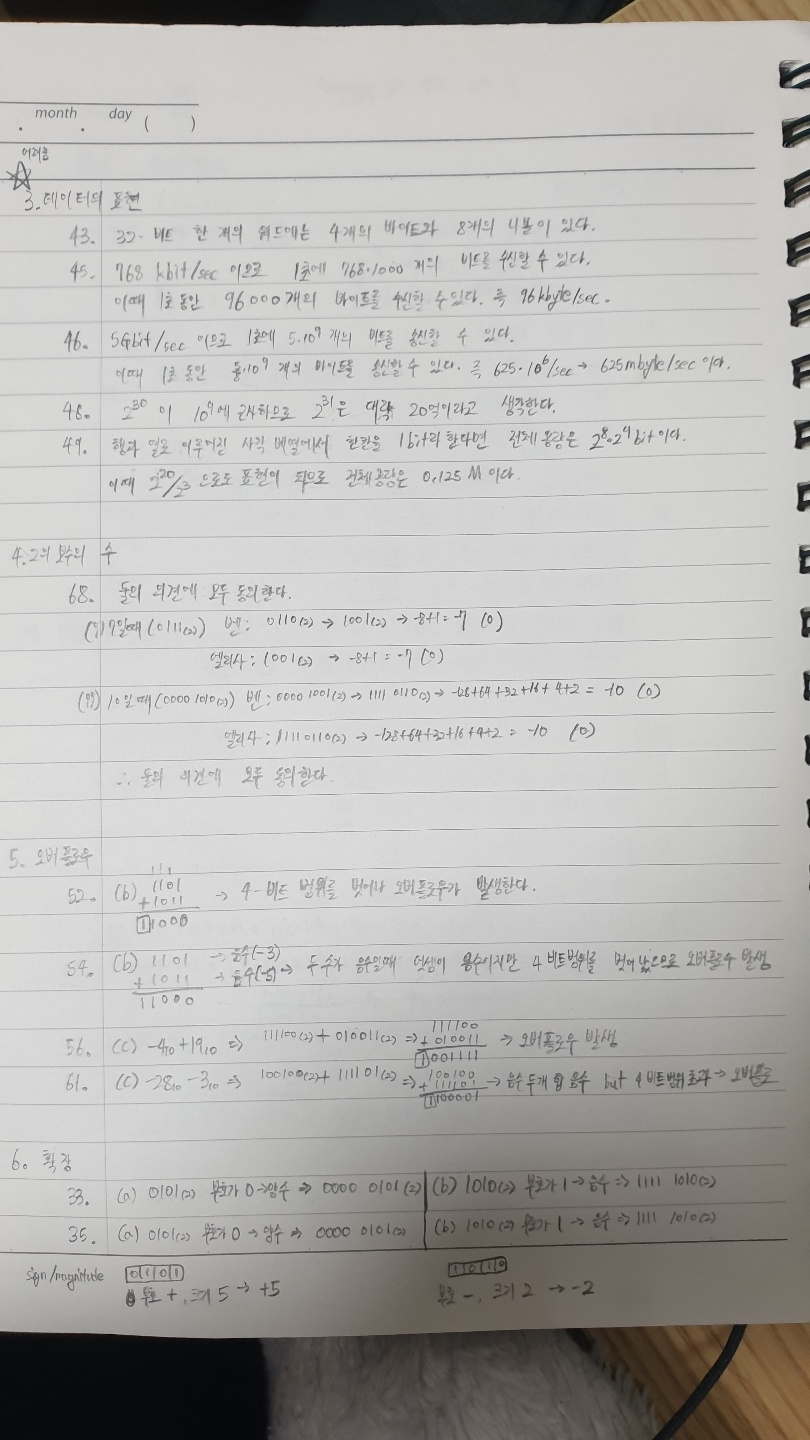 month day ( )
어려움
3. 데이터의 표현
43. 32-비트 한 개의 워드에는 4개의 바이트와 8개의 니블이 있다.
45. 768 kbit/sec 이므로 1초에 768·1000 개의 비트를 수신할 수 있다.
이때 1초 동안 96000개의 바이트를 수신할 수 있다. 즉 96kbyte/sec.
46. 5Gbit/sec 이므로 1초에 5·10⁹ 개의 비트를 송신할 수 있다.
이때 1초 동안 5/8·10⁹ 개의 바이트를 송신할 수 있다. 즉 625·10⁶/sec → 625mbyte/sec 이다.
48. 2³⁰ 이 10⁹에 근사하므로 2³¹은 대략 20억이라고 생각한다.
49. 행과 열로 이루어진 사각 배열에서 한칸을 1bit라 한다면 전체 용량은 2⁸·2⁹ bit이다.
이때 2²⁰/2³ 으로도 표현이 되므로 전체용량은 0.125 M 이다.
4. 2의 보수의 수
68. 둘의 의견에 모두 동의한다.
7일때 (0111(2)) 벤: 0110(2) → 1001(2) → -8+1 = -7 (0)
앨리사: 1001(2) → -8+1 = -7 (0)
10일때(0000 1010(2)) 벤: 0000 1001(2) → 1111 0110(2) → -128+64+32+16+4+2 = -10 (0)
앨리사: 11110110(2) → -128+64+32+16+4+2 = -10 (0)
∴ 둘의 의견에 모두 동의한다.
5. 오버플로우
111
52. (b) 1101
+1011 → 4-비트 범위를 벗어나 오버플로우가 발생한다.
11000
54. (b) 1101 → 음수(-3)
+ 1011 → 음수(-5) → 두 수가 음수일때 덧셈이 음수이지만 4비트범위를 벗어났으므로 오버플로우 발생
11000
56. (c) -4₁₀ + 19₁₀ ⇒ 111100(2) + 010011(2) ⇒ 111100
+ 010011 → 오버플로우 발생
1001111
61. (c) -28₁₀ - 3₁₀ ⇒ 100100(2) + 111101(2) ⇒ 100100
+ 111101 → 음수 두개 합 음수 but 4비트범위 초과 → 오버플로
1100001
6. 확장
33. (a) 0101(2) 부호가 0 → 양수 ⇒ 0000 0101(2) (b) 1010(2) 부호가 1 → 음수 ⇒ 1111 1010(2)
35. (a) 0101(2) 부호가 0 → 양수 ⇒ 0000 0101(2) (b) 1010(2) 부호가 1 → 음수 ⇒ 1111 1010(2)
sign/magnitude 0101 1010
부호 +, 크기 5 → +5 부호 -, 크기 2 → -2